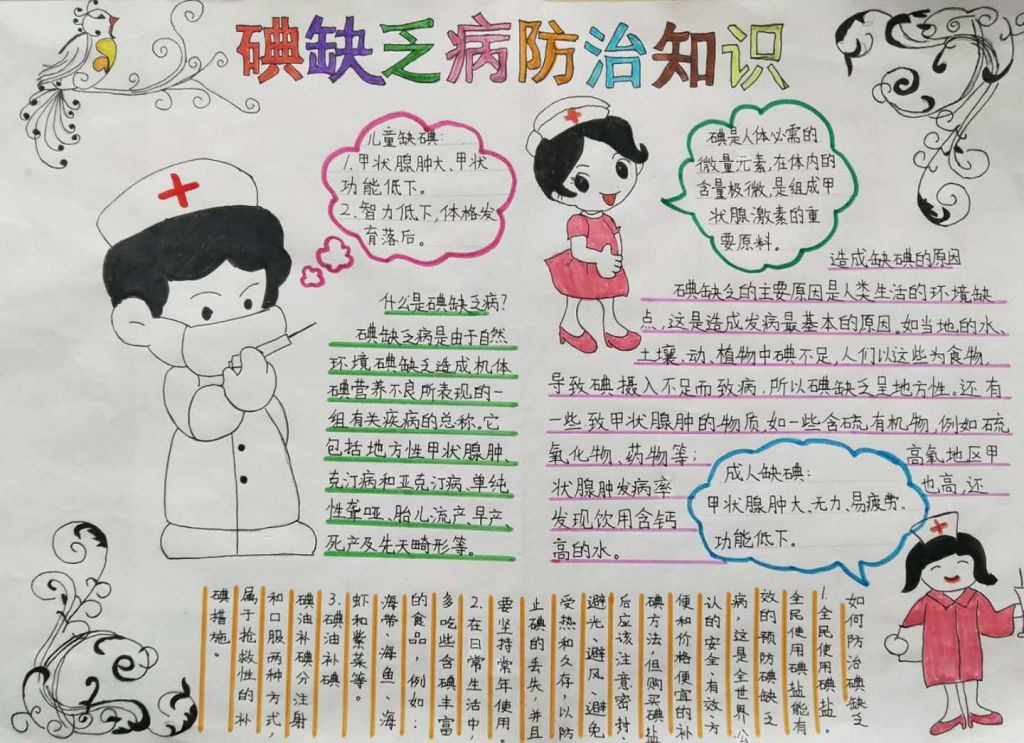 碘缺乏病防治知识
儿童缺碘:
1.甲状腺肿大、甲状
功能低下。
2.智力低下,体格发
育落后。
碘是人体必需的
微量元素,在体内的
含量极微,是组成甲
状腺激素的重
要原料。
什么是碘缺乏病?
碘缺乏病是由于自然
环境碘缺乏造成机体
碘营养不良所表现的一
组有关疾病的总称。它
包括地方性甲状腺肿、
克汀病和亚克汀病、单纯
性聋哑、胎儿流产、早产、
死产及先天畸形等。
造成缺碘的原因
碘缺乏的主要原因是人类生活的环境缺
点,这是造成发病最基本的原因。如当地的水、
土壤、动、植物中碘不足,人们以这些为食物,
导致碘摄入不足而致病,所以碘缺乏呈地方性。还有
一些致甲状腺肿的物质,如一些含硫有机物,例如硫
氧化物、药物等;
高氟地区甲
状腺肿发病率
也高,还
发现饮用含钙
高的水。
成人缺碘:
甲状腺肿大、无力、易疲劳、
功能低下。
如何防治碘缺乏
1.全民使用碘盐。
全民使用碘盐能有
效的预防碘缺乏
病,这是全世界公
认的安全、有效、方
便和价格便宜的补
碘方法,但购买碘盐
后应该注意密封、
避光、避风、避免
受热和久存,以防
止碘的丢失,并且
要坚持常年使用。
2.在日常生活中,
多吃些含碘丰富
的食品,例如:
海带、海鱼、海
虾和紫菜等。
3.碘油补碘
碘油补碘分注射
和口服两种方式,
属于抢救性的补
碘措施。